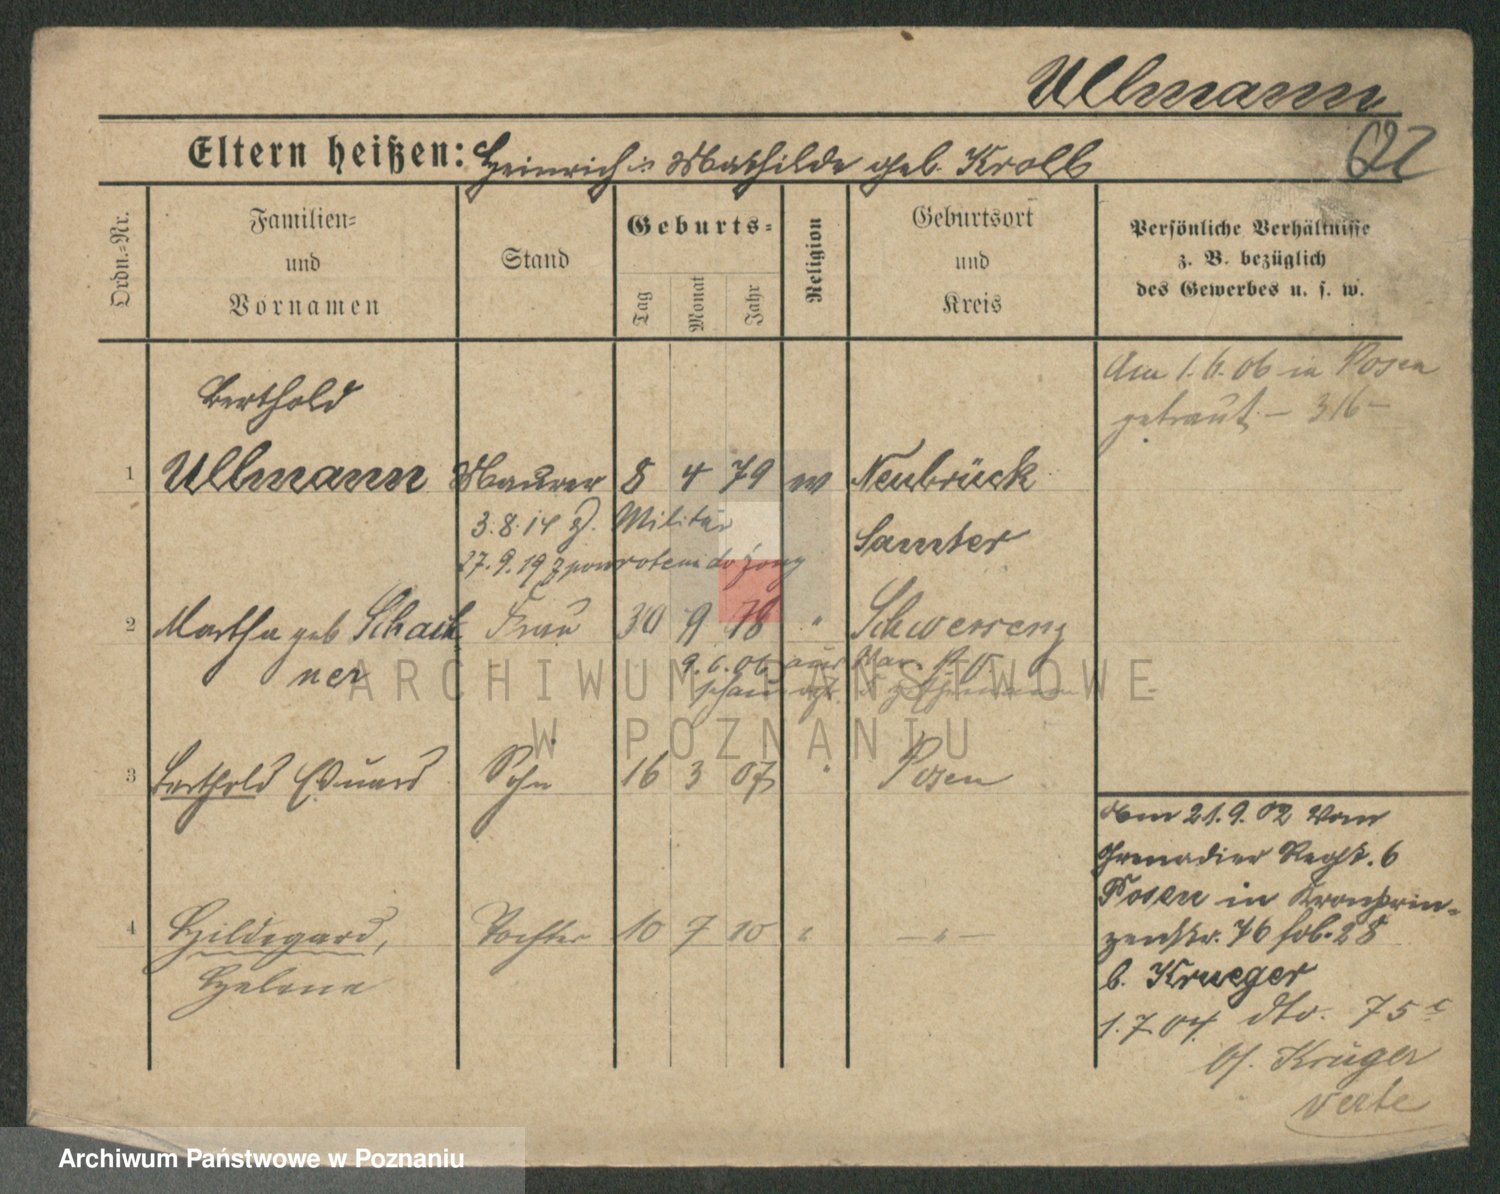 Ullmann
Eltern heißen: Heinrich u. Mathilde geb. Kroll
Ordn.-Nr.
Familien-
und
Vornamen
Stand
Geburts-
Tag
Monat
Jahr
Religion
Geburtsort
und
Kreis
Persönliche Verhältnisse
z. B. bezüglich
des Gewerbes u. s. w.
Am 1. 6. 06 in Posen
getraut – 316 –
Berthold
1 Ullmann Maurer 8 4 79 w Neubrück
3.8.14 z. Militär
Samter
27.9.19 z powrotem do żony
2 Martha geb Schach Frau 30 9 78 " Schwersenz
ner
9.6.06
3 Berthold Eduard Sohn 16 3 07 " Posen
Vom 21.9.02 vom
Grenadier Regt. 6
Posen in Kronprin-
zenstr. 76
b. Krueger
4 Hildegard, Tochter 10 7 10 " — " —
Helene
1.7.04. dto. 75c
b/. Krüger
verte
ARCHIWUM PAŃSTWOWE
W POZNANIU
Archiwum Państwowe w Poznaniu